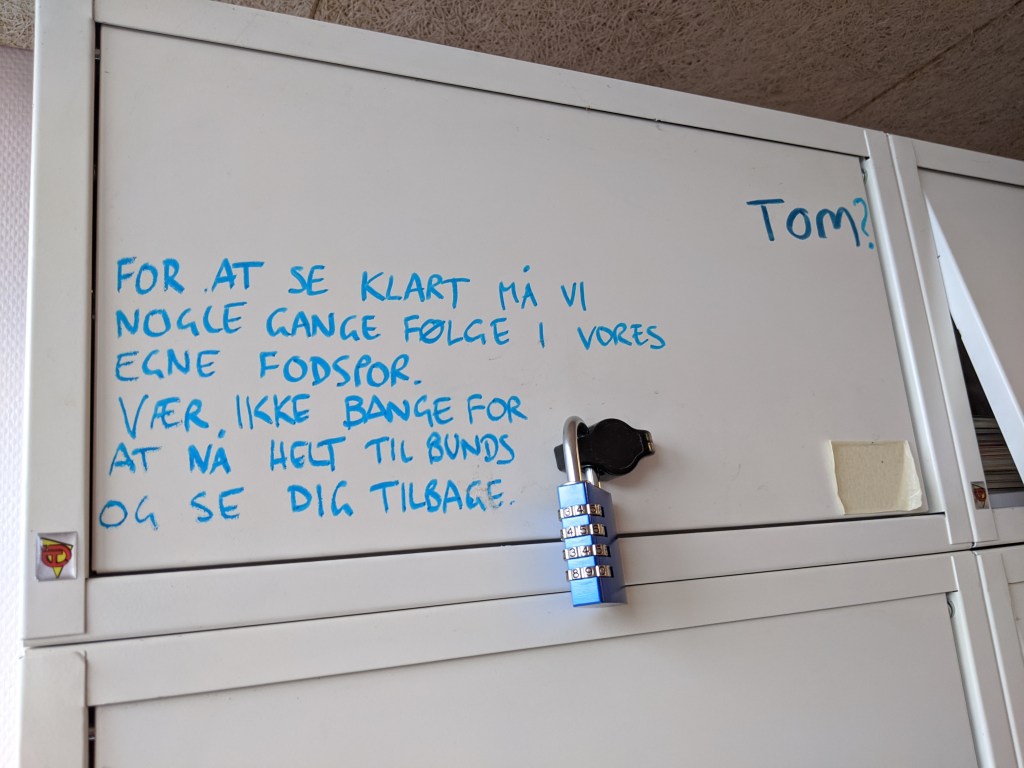 TOM?
FOR AT SE KLART MÅ VI
NOGLE GANGE FØLGE I VORES
EGNE FODSPOR.
VÆR IKKE BANGE FOR
AT NÅ HELT TIL BUNDS
OG SE DIG TILBAGE.